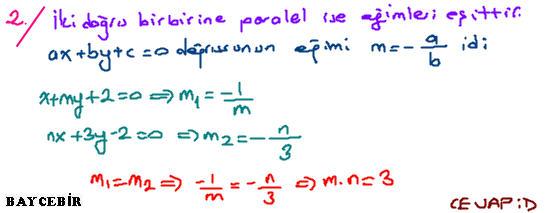 2./ İki doğru birbirine paralel ise eğimleri eşittir.
ax+by+c=0 doğrusunun eğimi m=-a/b idi
x+my+2=0 ⇒ m₁=-1/m
nx+3y-2=0 ⇒ m₂=-n/3
m₁=m₂ ⇒ -1/m=-n/3 ⇒ m.n=3
BAYCEBİR
CEVAP:D